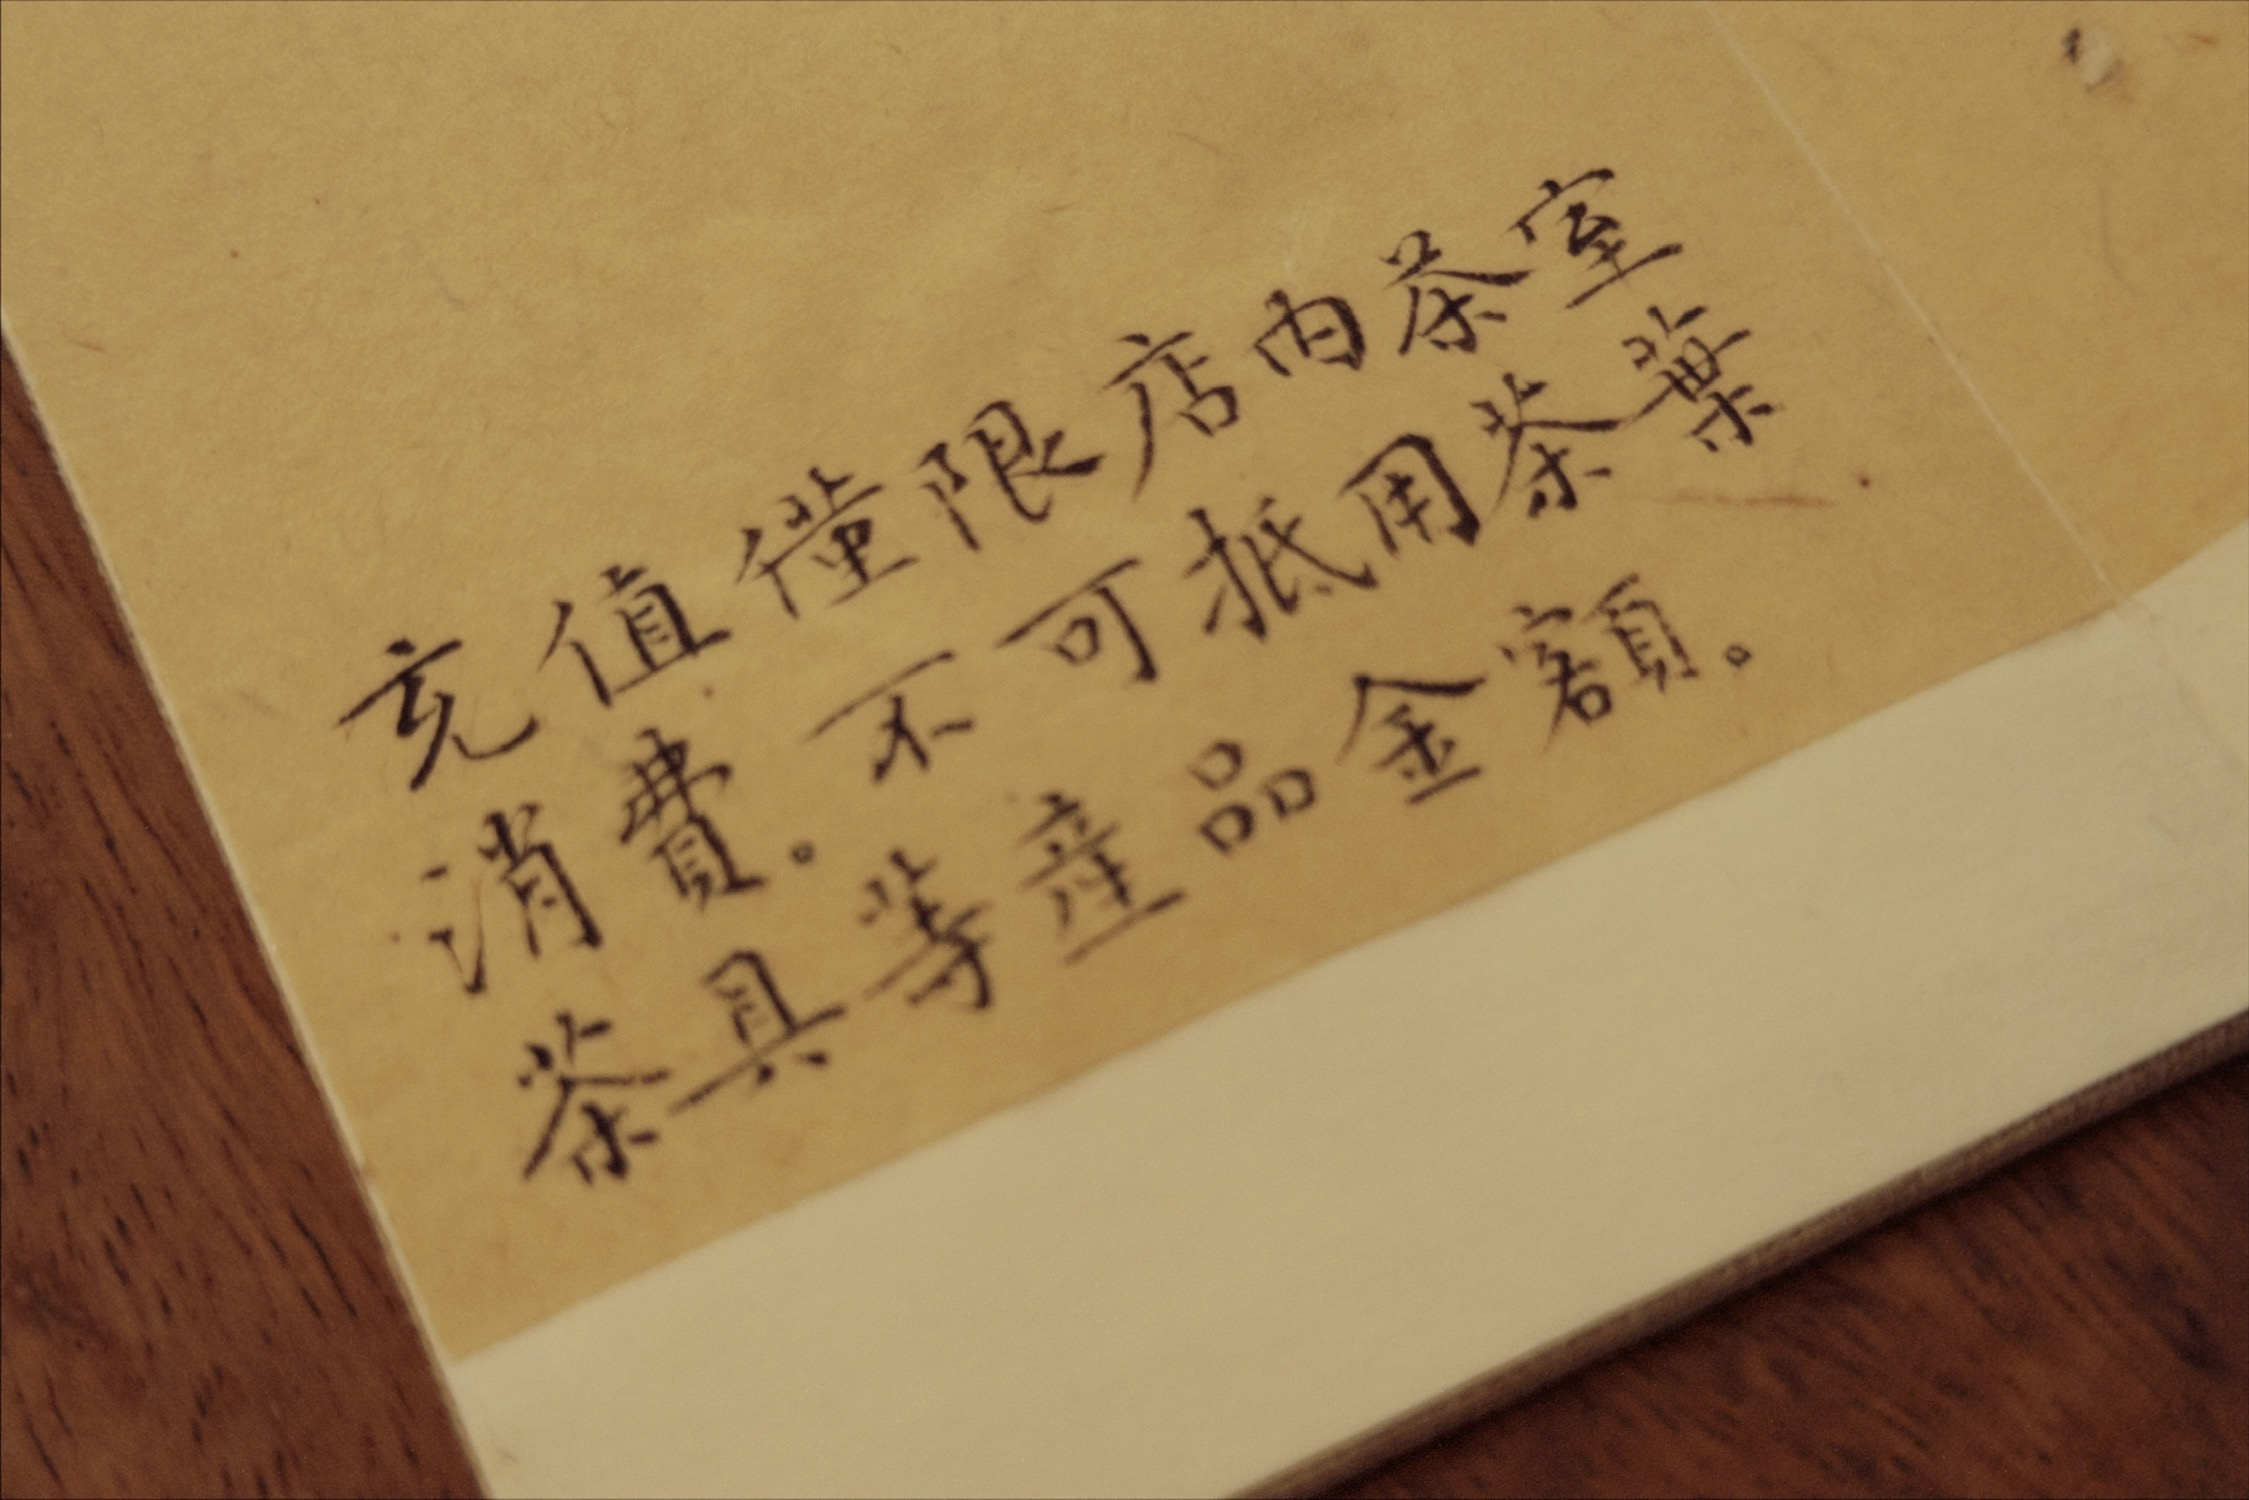 充值僅限店内茶室
消費。不可抵用茶葉
茶具等産品金額。